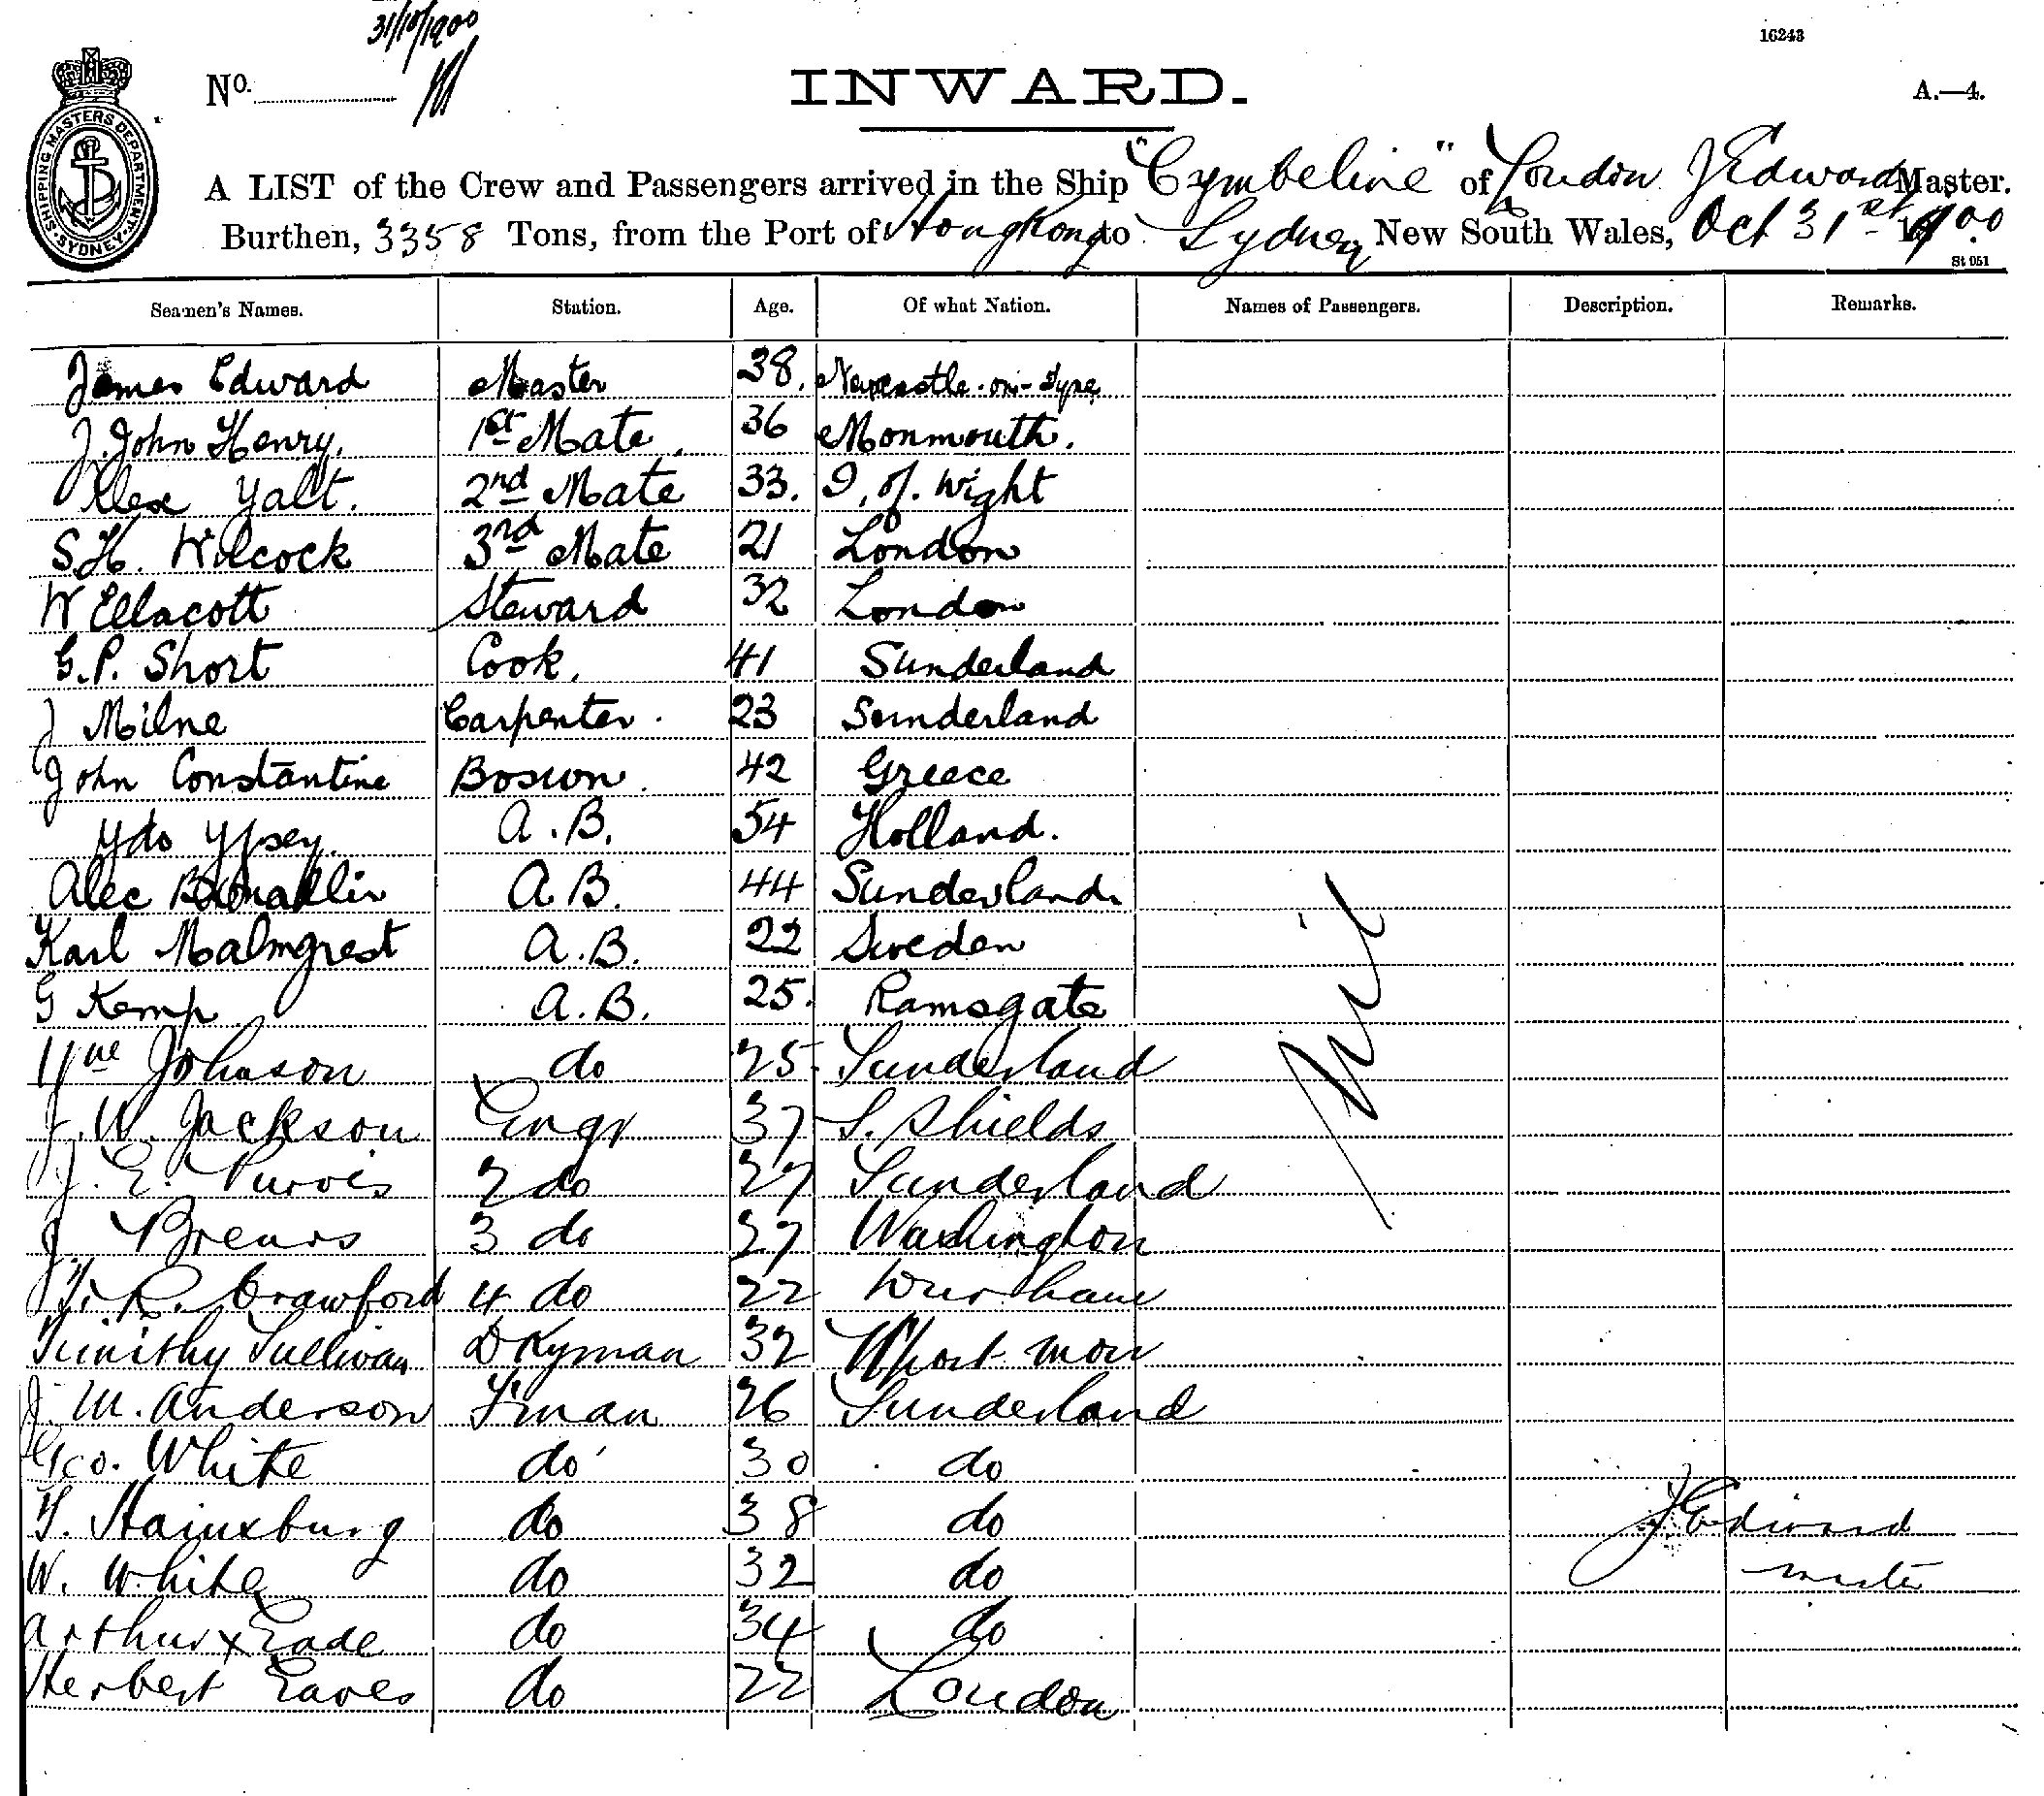 31/10/1900
16243
No.
INWARD.
A.—4.
SHIPPING MASTERS DEPARTMENT SYDNEY
A LIST of the Crew and Passengers arrived in the Ship "Cymbeline" of London J Edward Master.
Burthen, 3358 Tons, from the Port of HongKong to Sydney New South Wales, Oct 31st 1900
St 051
Seamen's Names. Station. Age. Of what Nation. Names of Passengers. Description. Remarks.
James Edward Master 38. Newcastle-on-Tyne
J. John Henry. 1st Mate. 36 Monmouth.
Alex Yalt. 2nd Mate 33. I. of. Wight
S.H. Wilcock 3rd Mate 21 London
W Ellacott Steward 32 London
G.P. Short Cook. 41 Sunderland
J Milne Carpenter. 23 Sunderland
John Constantine Boswn. 42 Greece
Ydo Ypsey. A.B. 54 Holland.
Alec A.B. 44 Sunderland.
Karl Malmgrest A.B. 22 Sweden
G Kemp A.B. 25. Ramsgate
Johnson do 25. Sunderland
J. W. Jackson Engr 37 S. Shields
J. E. Purvis 2 do 27 Sunderland
J Brewis 3 do 27 Washington
R. Crawford 4 do 22 Durham
Timithy Sullivan DKyman 32
J. M. Anderson F'man 26 Sunderland
Geo. White do 30 do
T. Hainsburg do 38 do
W. White do 32 do
Arthur x Eade do 34 do
Herbert Eaves do 22 London
Nil
J Edward
master